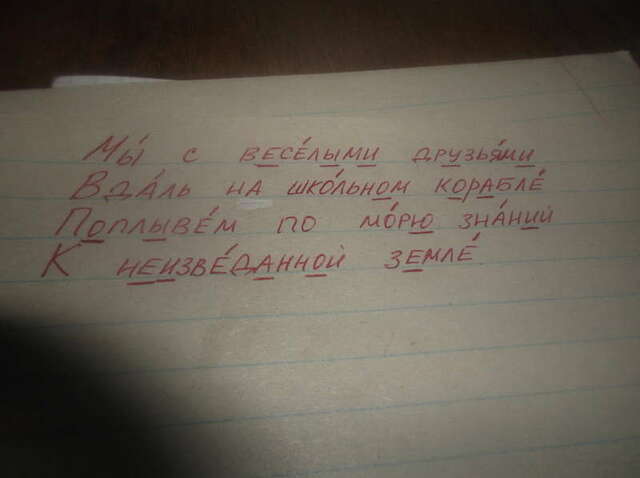 Мы́ с весё́лыми друзья́ми
Вда́ль на шко́льном корабле́
Поплыве́м по мо́рю зна́ний
К неизве́данной земле́